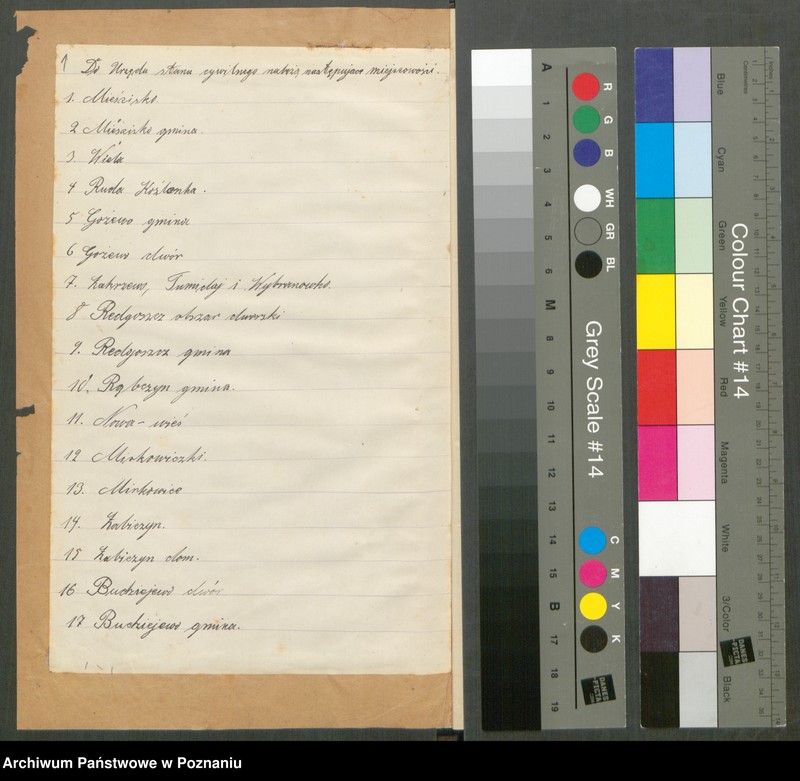 1 Do Urzędu stanu cywilnego należą następujące miejscowości.
1. Mieścisko.
2 Mieścisko gmina.
3. Wiela
4 Ruda Koźlanka.
5 Gożewo gmina
6 Gożewo dwór
7. Zakrzewo, Tumidaj i Wybranówko.
8 Redgoszcz obszar dworski
9. Redgoszcz gmina
10. Rąbczyn gmina.
11. Nowa-wieś
12 Mirkowiczki.
13. Mirkowice
14. Żabiczyn.
15 Żabiczyn dom.
16 Budziejewo dwór
17 Budziejewo gmina.
A 1 2 3 4 5 6 M 8 9 10 11 12 13 14 15 B 17 18 19
R G B WH GR BL
Grey Scale #14
C M Y K
DANES
-PICTA
.COM
Blue
Cyan
Green
Yellow
Red
Magenta
White
3/Color
Black
Colour Chart #14
Centimetres
Inches
DANES
-PICTA
.COM
Archiwum Państwowe w Poznaniu